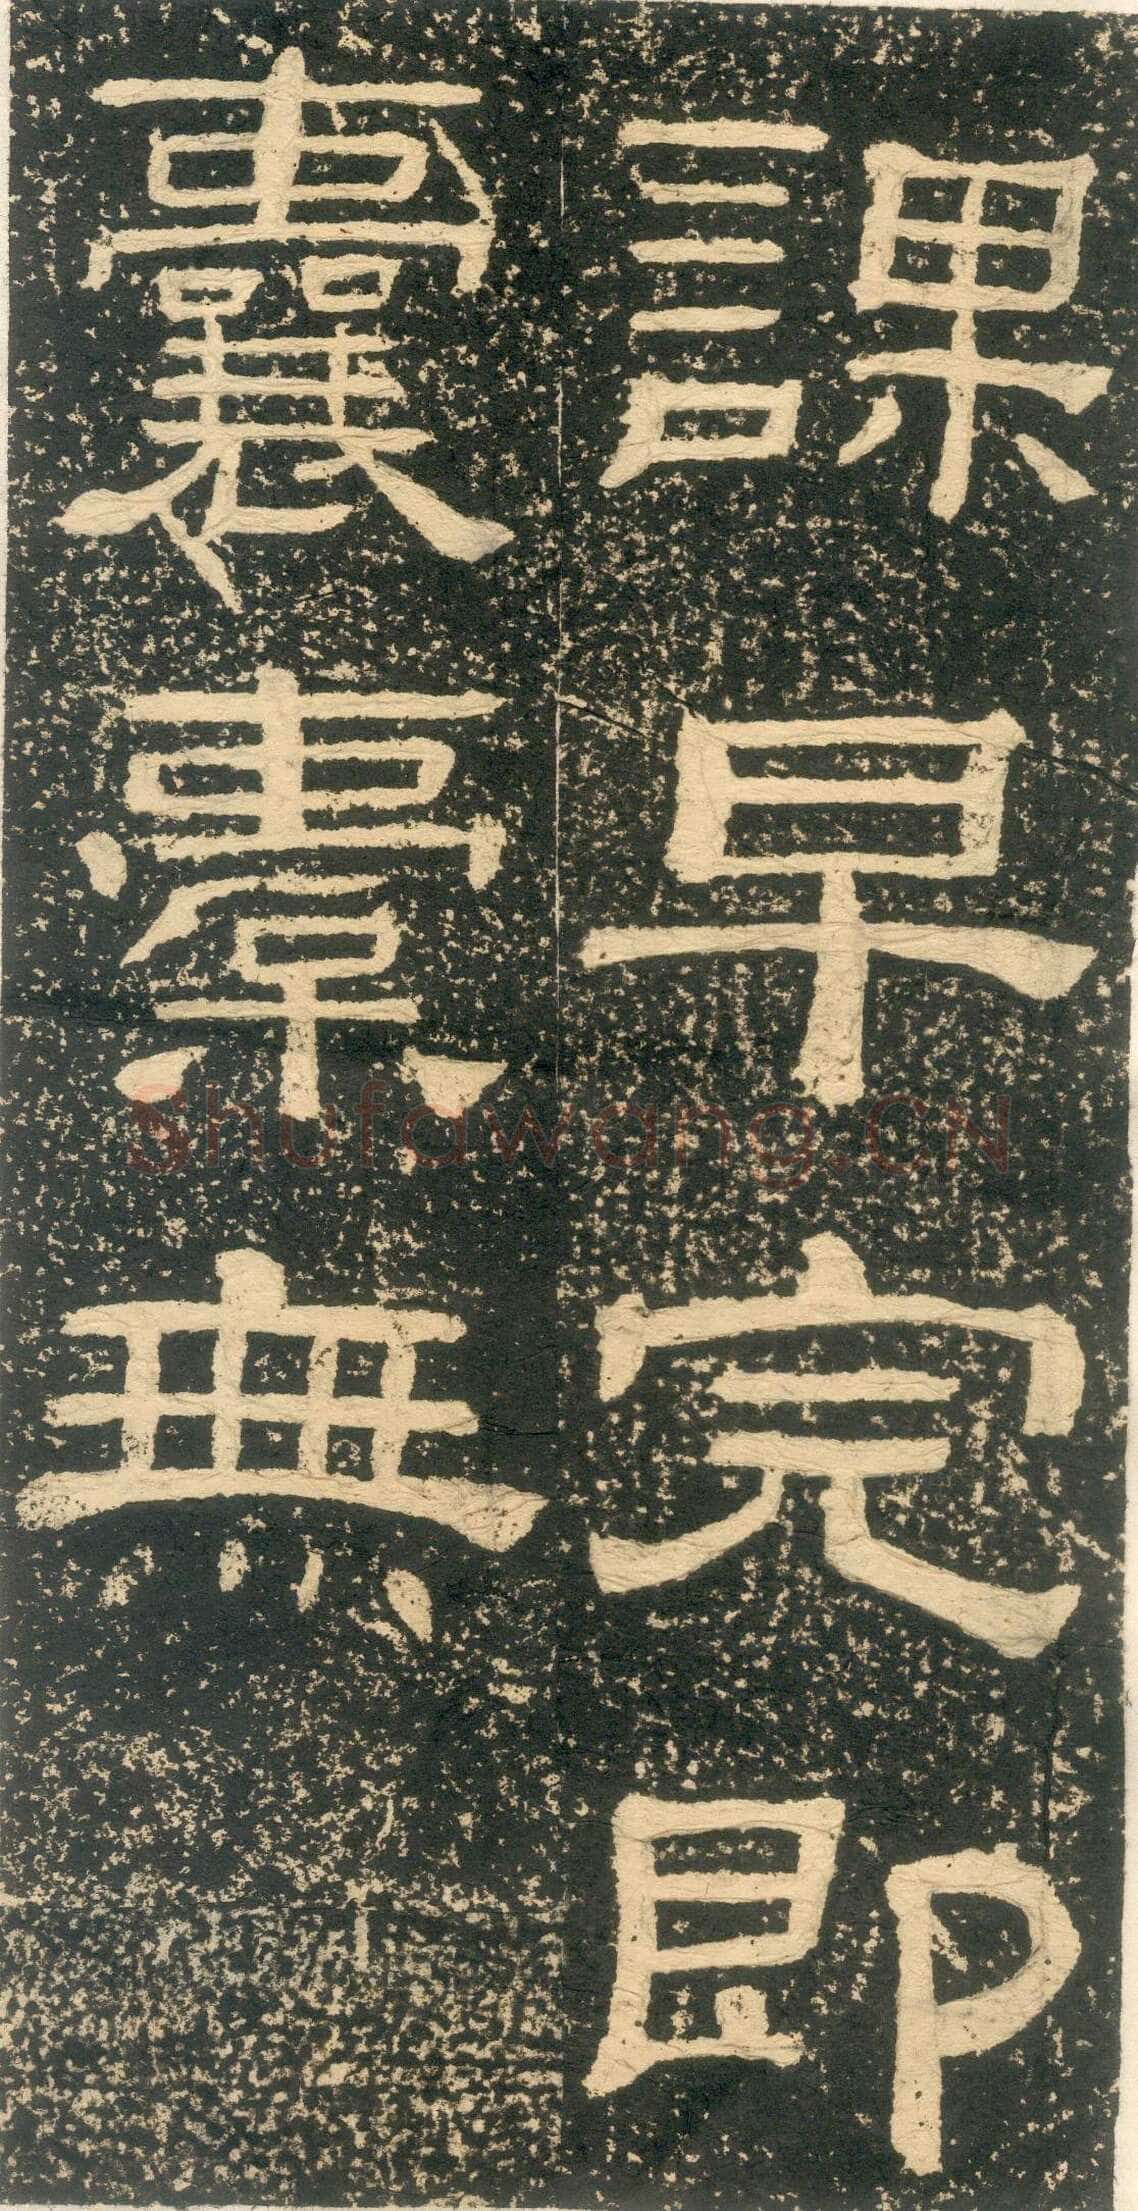 課早完即
囊橐無
Shufawang.CN